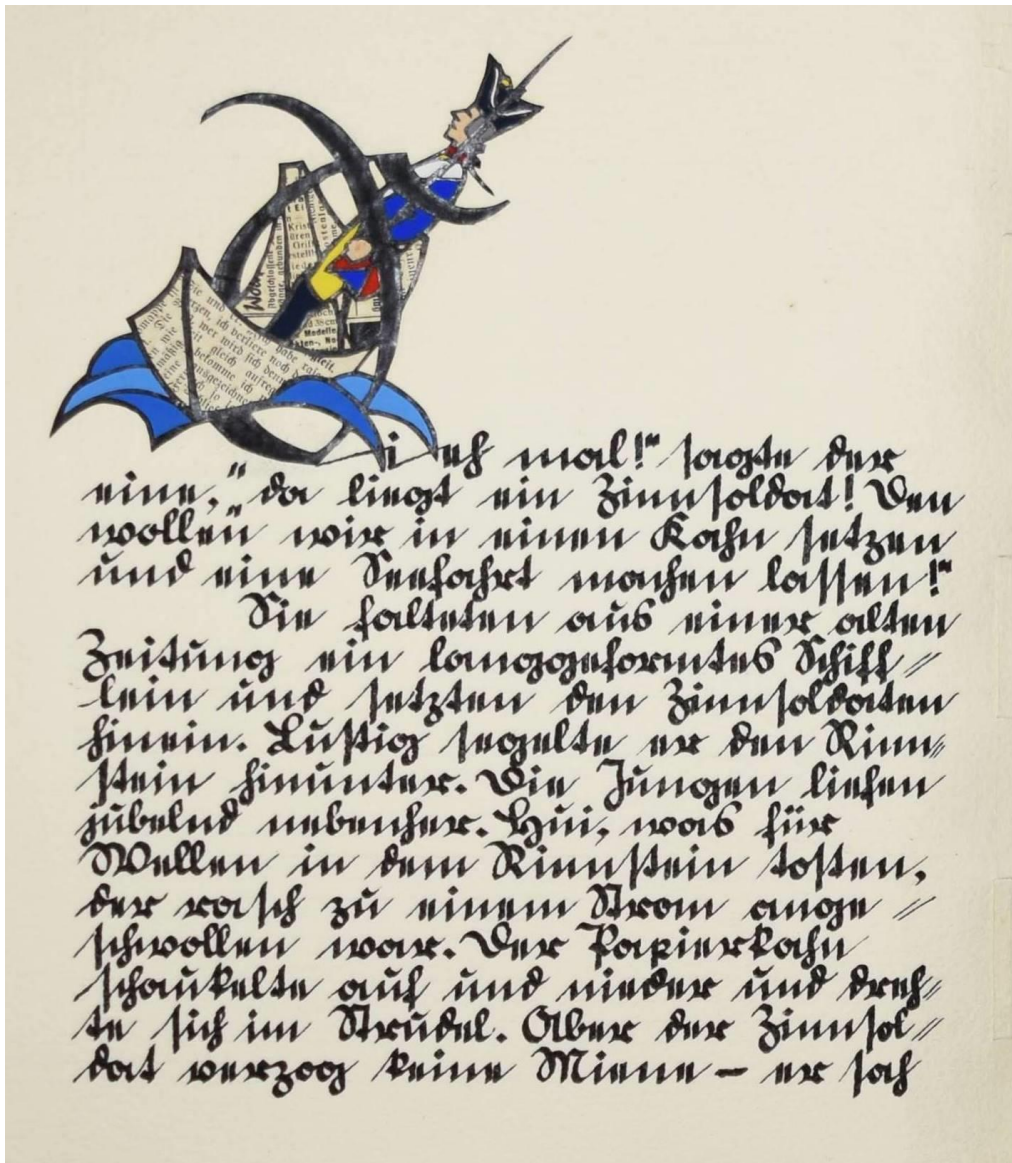 Krist
Abgeschlossene
gebunden
Modelle
ich verliere noch
habe
wer wird sich denn
gleich aufreg
bekomme ich
ausgezeichne
Sieh mal!“ sagte der
eine, „da liegt ein Zinnsoldat! Den
wollen wir in einen Kahn setzen
und eine Seefahrt machen lassen!“
Sie falteten aus einer alten
Zeitung ein langgeformtes Schiff=
lein und setzten den Zinnsoldaten
hinein. Lustig segelte er den Rinn=
stein hinunter. Die Jungen liefen
jubelnd nebenher. Hui, was für
Wellen in dem Rinnstein tosten,
der rasch zu einem Strom ange=
schwollen war. Der Papierkahn
schaukelte auf und nieder und dreh=
te sich im Strudel. Aber der Zinnsol=
dat verzog keine Miene – er sah